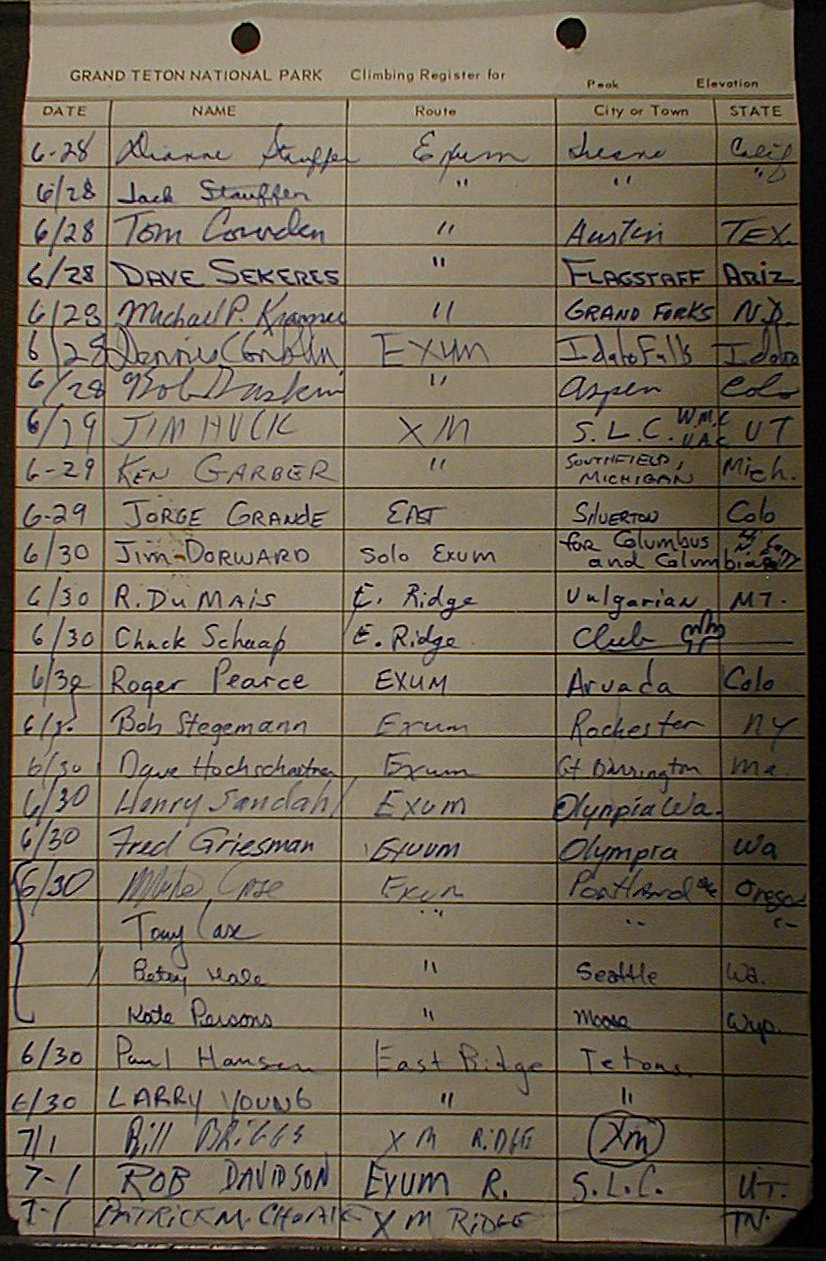 GRAND TETON NATIONAL PARK Climbing Register for Peak Elevation
DATE NAME Route City or Town STATE
6-28 Dianne Stauffer Exum Fresno Calif
6/28 Jack Stauffer " " "
6/28 Tom Cowden " Austin TEX.
6/28 DAVE SEKERES " FLAGSTAFF ARIZ
6/28 Michael P. " GRAND FORKS N.D.
6/28 Dennis EXUM Idaho Falls Idaho
6/28 Bob " Aspen Colo
6/29 JIM HUCK XM S.L.C. W.M.C U.A.C UT
6-29 KEN GARBER " SOUTHFIELD, MICHIGAN Mich.
6-29 JORGE GRANDE EAST SILVERTON Colo
6/30 Jim DORWARD Solo Exum for Columbus and Columbia
6/30 R. DU MAIS E. Ridge Vulgarian MT.
6/30 Chuck Schaap E. Ridge Club
6/30 Roger Pearce EXUM Arvada Colo
6/30 Bob Stegemann Exum Rochester NY
6/30 Dave Exum Gt Barrington Ma.
6/30 Henry Sandahl EXUM Olynpia Wa.
6/30 Fred Griesman Exuum Olympia Wa
6/30 Mike Case Exum Portland Oregon
Tony Case " " "
Betsy Hale " Seattle Wa.
Kate Persons " Moose Wyo.
6/30 Paul Hansen East Ridge Tetons.
6/30 LARRY YOUNG " "
7/1 Bill BRIGGS XM RIDGE XM
7-1 ROB DAVIDSON EXUM R. S.L.C. UT.
7-1 PATRICK M. XM RIDGE TN.